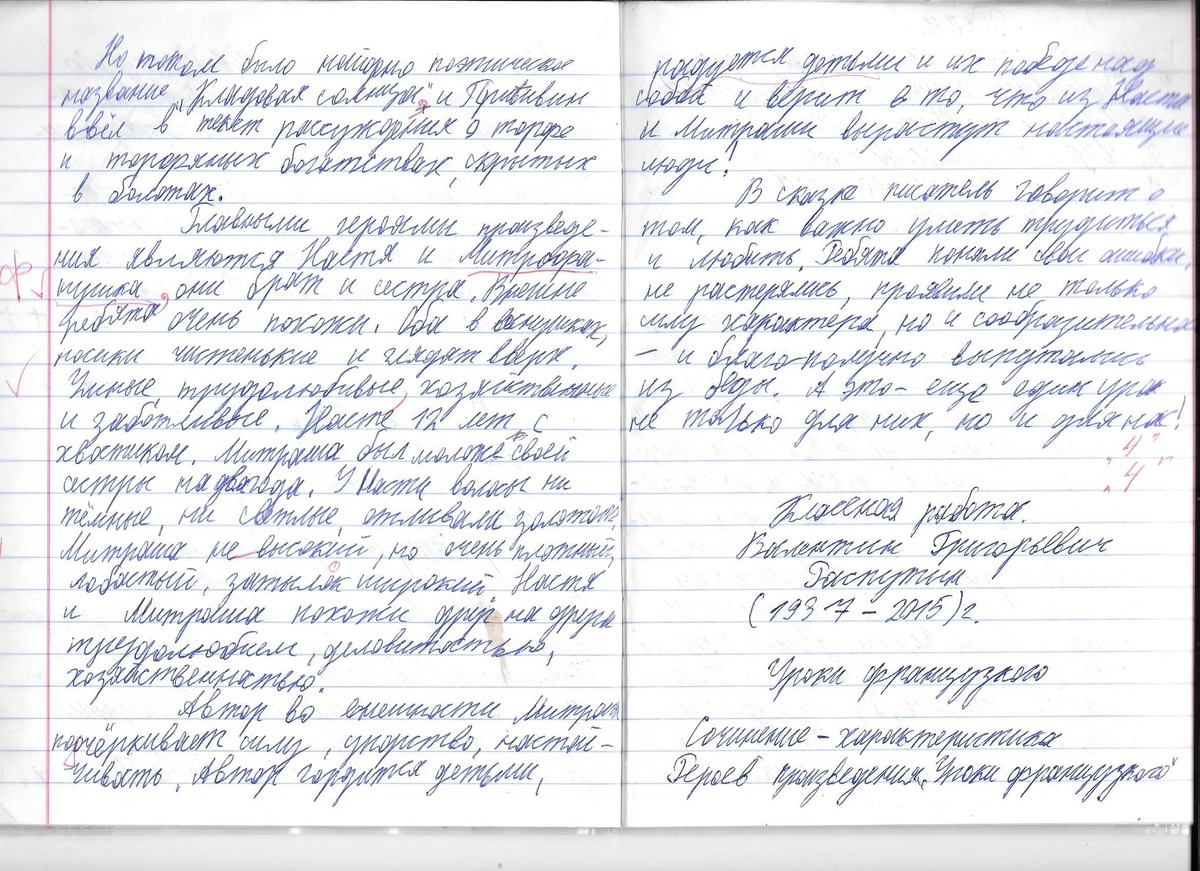 Но потом было найдено поэтическое
название „Кладовая солнца" и Пришвин
ввёл в текст рассуждения о торфе
и торфяных богатствах, скрытых
в болотах.
Главными героями произведе-
ния являются Настя и Митрофа-
нушка, они брат и сестра. Внешне
ребята очень похожи. Оба в веснушках,
носики чистенькие и глядят вверх.
Умные, трудолюбивые, хозяйственные
и заботливые. Насте 12 лет с
хвостиком. Митраша был моложе своей
сестры на два года. У Насти волосы ни
тёмные, ни светлые, отливали золотом.
Митраша не высокий, но очень плотный,
лобастый, затылок широкий. Настя
и Митраша похожи друг на друга
трудолюбием, деловитостью,
хозяйственностью.
Автор во внешности Митраши
подчёркивает силу, упорство, настой-
чивать. Автор гордится детьми,
радуется детьми и их победе над
собой и верит в то, что из Насти
и Митраши вырастут настоящие
люди!
В сказке писатель говорит о
том, как важно уметь трудиться
и любить. Ребята поняли свои ошибки,
не растерялись, проявили не только
силу характера, но и сообразительнос
– и благо-получно выпутались
из беды. А это- еще один урок
не только для них, но и для нас!
„4"
„4"
Классная работа.
Валентин Григорьевич
Распутин
(1937 – 2015) г.
Уроки французкого
Сочинение – характеристика
Героев произведения „Уроки французкого"
ф